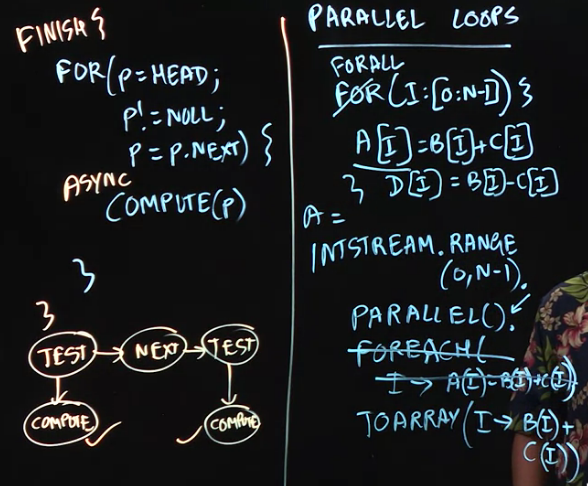 FINISH {
FOR(P=HEAD;
P!=NULL;
P=P.NEXT) {
ASYNC
COMPUTE(P)
}
}
TEST → NEXT → TEST
COMPUTE COMPUTE
PARALLEL LOOPS
FORALL
FOR(I:[0:N-1]) {
A[I]=B[I]+C[I]
} D[I]=B[I]-C[I]
A =
INTSTREAM.RANGE
(0,N-1).
PARALLEL().
FOREACH(
I → A(I)=B(I)+C(I))
TOARRAY(I→B(I)+
C(I))